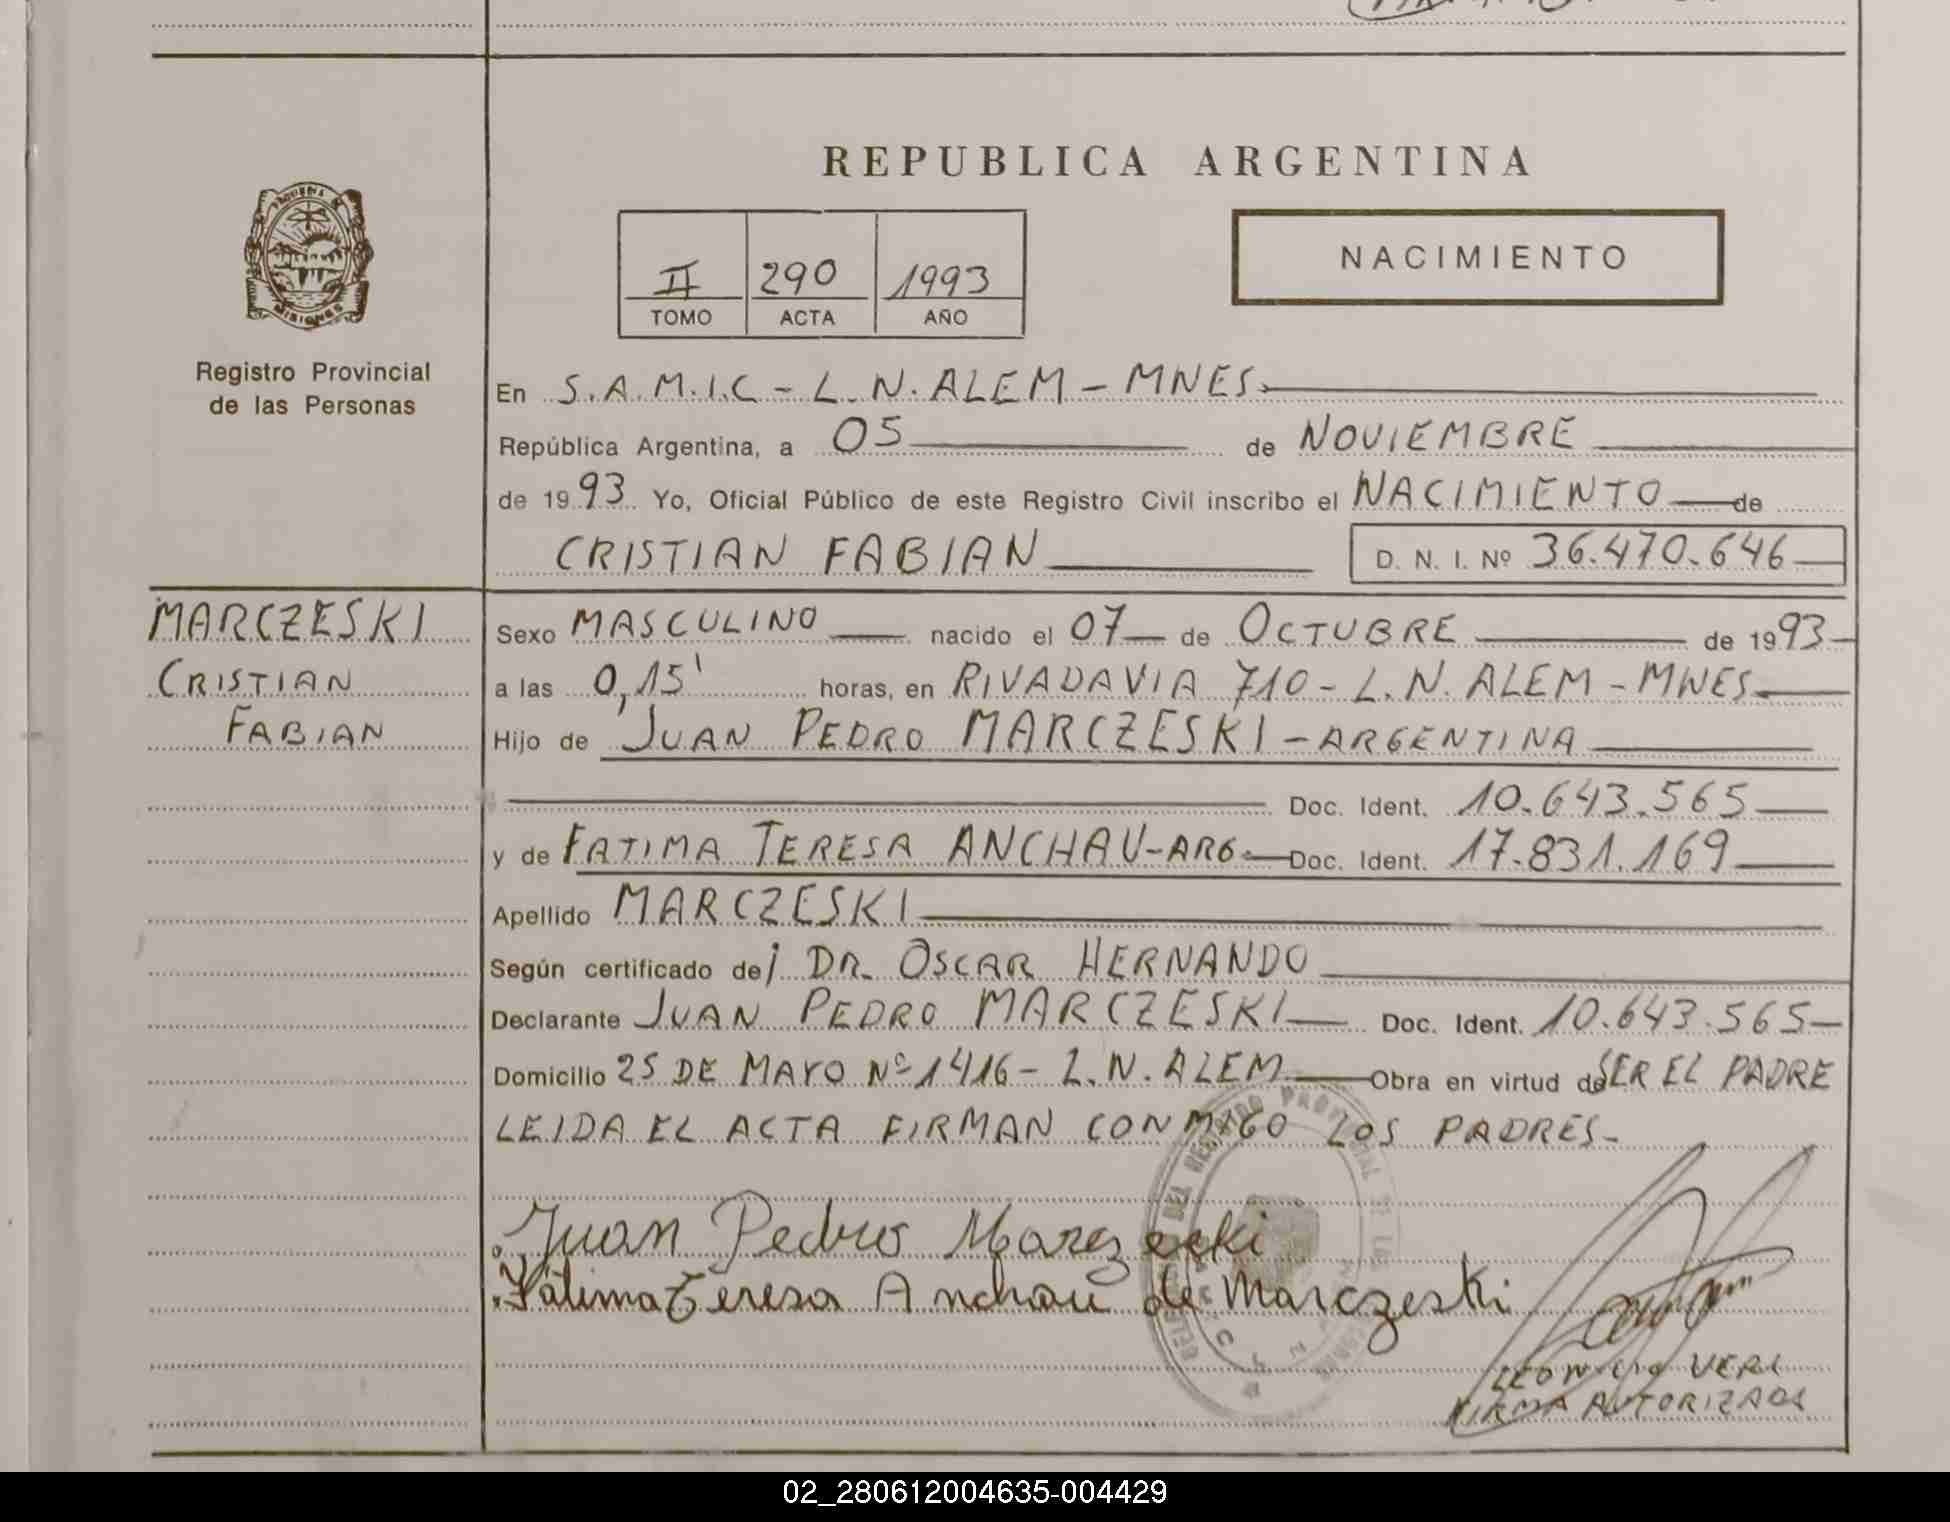 REPUBLICA ARGENTINA
II 290 1993
TOMO ACTA AÑO
NACIMIENTO
MISIONES
Registro Provincial
de las Personas
En S.A.M.I.C - L.N. ALEM - MNES.
República Argentina, a 05 de NOVIEMBRE
de 1993 Yo, Oficial Público de este Registro Civil inscribo el NACIMIENTO de
CRISTIAN FABIAN D. N. I. Nº 36.470.646
MARCZESKI
CRISTIAN
FABIAN
Sexo MASCULINO nacido el 07 de OCTUBRE de 1993
a las 0,15' horas, en RIVADAVIA 710 - L.N. ALEM - MNES.
Hijo de JUAN PEDRO MARCZESKI - ARGENTINA
Doc. Ident. 10.643.565
y de FATIMA TERESA ANCHAU - ARG. Doc. Ident. 17.831.169
Apellido MARCZESKI
Según certificado de; DR. OSCAR HERNANDO
Declarante JUAN PEDRO MARCZESKI Doc. Ident. 10.643.565
Domicilio 25 DE MAYO Nº 1416 - L.N. ALEM Obra en virtud de SER EL PADRE
LEIDA EL ACTA FIRMAN CONMIGO LOS PADRES.
Juan Pedro Marczeski
Fátima Teresa Anchau de Marczeski
FIRMA AUTORIZADA
02_280612004635-004429